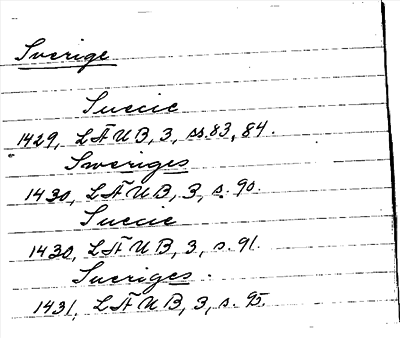 Sverige
Suecie
1429, LÄUB, 3, ss. 83, 84.
Sweriges
1430, LÄUB, 3, s. 90.
Suecie
1430, LÄUB, 3, s. 91.
Sueriges.
1431, LÄUB, 3, s. 95.